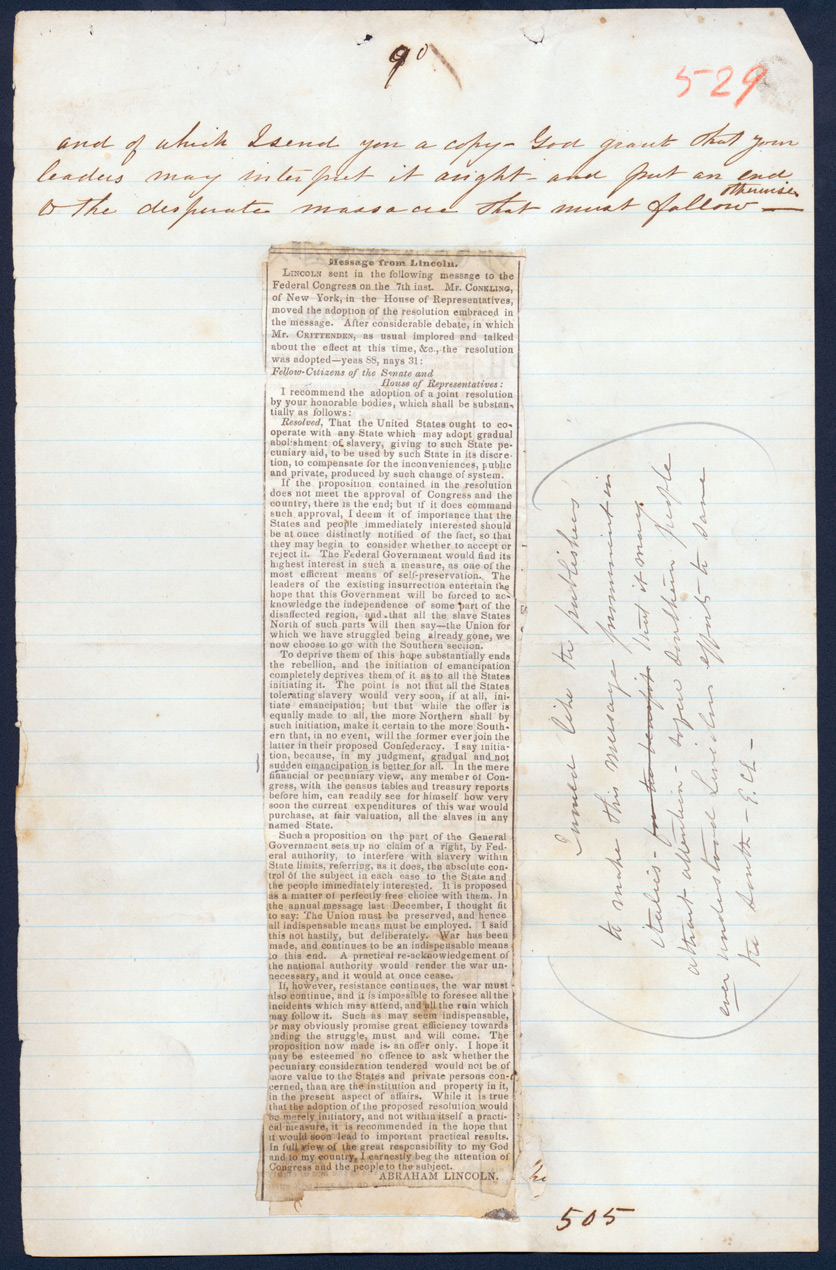 90
529
and of which I send you a copy - God grant that your
leaders may interpret it aright - and put an end
otherwise
to the desperate massacre that must follow —
Message from Lincoln.
LINCOLN sent in the following message to the
Federal Congress on the 7th inst. Mr. CONKLING,
of New York, in the House of Representatives,
moved the adoption of the resolution embraced in
the message. After considerable debate, in which
Mr. CRITTENDEN, as usual implored and talked
about the effect at this time, &c., the resolution
was adopted—yeas 88, nays 31:
Fellow-Citizens of the Senate and
House of Representatives:
I recommend the adoption of a joint resolution
by your honorable bodies, which shall be substan-
tially as follows:
Resolved, That the United States ought to co-
operate with any State which may adopt gradual
abolishment of slavery, giving to such State pe-
cuniary aid, to be used by such State in its discre-
tion, to compensate for the inconveniences, public
and private, produced by such change of system.
If the proposition contained in the resolution
does not meet the approval of Congress and the
country, there is the end; but if it does command
such approval, I deem it of importance that the
States and people immediately interested should
be at once distinctly notified of the fact, so that
they may begin to consider whether to accept or
reject it. The Federal Government would find its
highest interest in such a measure, as one of the
most efficient means of self-preservation. The
leaders of the existing insurrection entertain the
hope that this Government will be forced to ac-
knowledge the independence of some part of the
disaffected region, and that all the slave States
North of such parts will then say—the Union for
which we have struggled being already gone, we
now choose to go with the Southern section.
To deprive them of this hope substantially ends
the rebellion, and the initiation of emancipation
completely deprives them of it as to all the States
initiating it. The point is not that all the States
tolerating slavery would very soon, if at all, ini-
tiate emancipation; but that while the offer is
equally made to all, the more Northern shall by
such initiation, make it certain to the more South-
ern that, in no event, will the former ever join the
latter in their proposed Confederacy. I say initia-
tion, because, in my judgment, gradual and not
sudden emancipation is better for all. In the mere
financial or pecuniary view, any member of Con-
gress, with the census tables and treasury reports
before him, can readily see for himself how very
soon the current expenditures of this war would
purchase, at fair valuation, all the slaves in any
named State.
Such a proposition on the part of the General
Government sets up no claim of a right, by Fed-
eral authority, to interfere with slavery within
State limits, referring, as it does, the absolute con-
trol of the subject in each case to the State and
the people immediately interested. It is proposed
as a matter of perfectly free choice with them. In
the annual message last December, I thought fit
to say: The Union must be preserved, and hence
all indispensable means must be employed. I said
this not hastily, but deliberately. War has been
made, and continues to be an indispensable means
to this end. A practical re-acknowledgement of
the national authority would render the war un-
necessary, and it would at once cease.
If, however, resistance continues, the war must
also continue, and it is impossible to foresee all the
incidents which may attend, and all the ruin which
may follow it. Such as may seem indispensable,
or may obviously promise great efficiency towards
ending the struggle, must and will come. The
proposition now made is an offer only. I hope it
may be esteemed no offence to ask whether the
pecuniary consideration tendered would not be of
more value to the States and private persons con-
cerned, than are the institution and property in it,
in the present aspect of affairs. While it is true
that the adoption of the proposed resolution would
be merely initiatory, and not within itself a practi-
cal measure, it is recommended in the hope that
it would soon lead to important practical results.
In full view of the great responsibility to my God
and to my country, I earnestly beg the attention of
Congress and the people to the subject.
ABRAHAM LINCOLN.
I would like the publishers
to make this message prominent in
italics - for the benefit that it may
attract attention - Southern people
ever understood Lincolns efforts to save
the South -
505